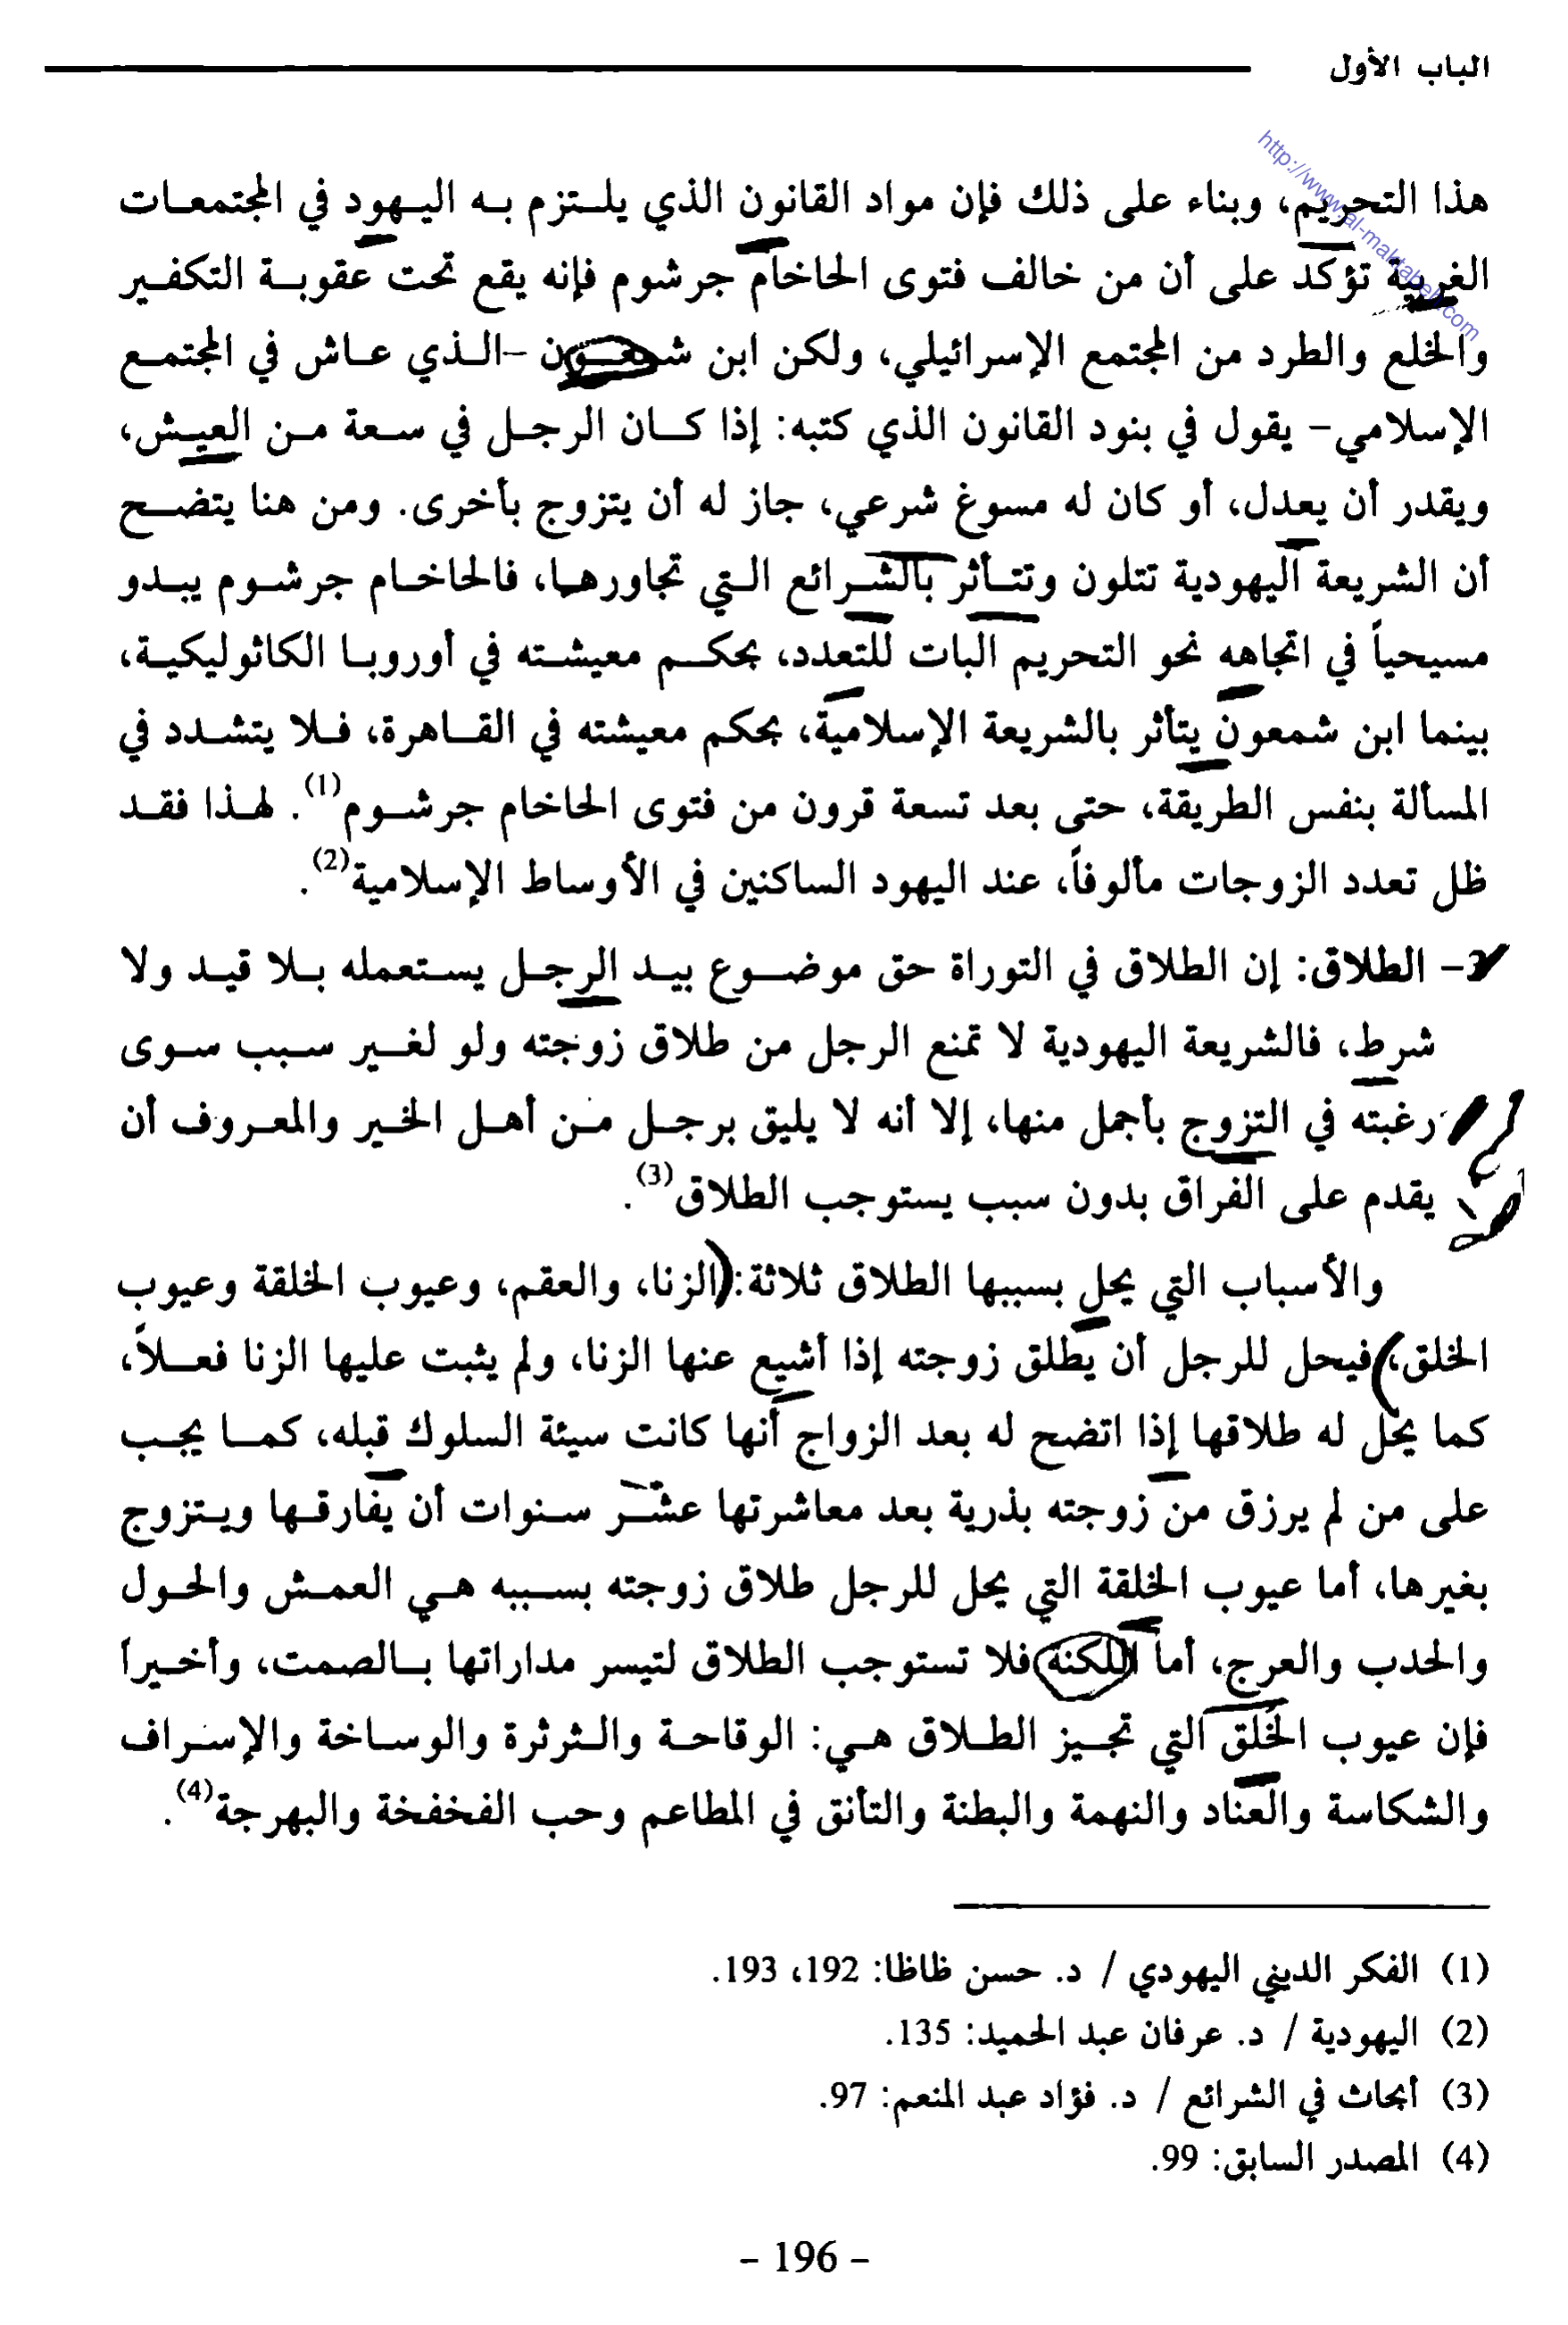 الباب الأول
http://www.al-maktabeh.com
هذا التحريم، وبناء على ذلك فإن مواد القانون الذي يلتزم به اليهود في المجتمعات
الغربية تؤكد على أن من خالف فتوى الحاخام جرشوم فإنه يقع تحت عقوبة التكفير
والخلع والطرد من المجتمع الإسرائيلي، ولكن ابن شمعون -الذي عاش في المجتمع
الإسلامي- يقول في بنود القانون الذي كتبه: إذا كان الرجل في سعة من العيش،
ويقدر أن يعدل، أو كان له مسوغ شرعي، جاز له أن يتزوج بأخرى. ومن هنا يتضح
أن الشريعة اليهودية تتلون وتتأثر بالشرائع التي تجاورها، فالحاخام جرشوم يبدو
مسيحياً في اتجاهه نحو التحريم البات للتعدد، بحكم معيشته في أوروبا الكاثوليكية،
بينما ابن شمعون يتأثر بالشريعة الإسلامية، بحكم معيشته في القاهرة، فلا يتشدد في
المسألة بنفس الطريقة، حتى بعد تسعة قرون من فتوى الحاخام جرشوم(1). لهذا فقد
ظل تعدد الزوجات مألوفاً، عند اليهود الساكنين في الأوساط الإسلامية(2).
3- الطلاق: إن الطلاق في التوراة حق موضوع بيد الرجل يستعمله بلا قيد ولا
شرط، فالشريعة اليهودية لا تمنع الرجل من طلاق زوجته ولو لغير سبب سوى
رغبته في التزوج بأجمل منها، إلا أنه لا يليق برجل من أهل الخير والمعروف أن
يقدم على الفراق بدون سبب يستوجب الطلاق(3).
والأسباب التي يحل بسببها الطلاق ثلاثة: (الزنا، والعقم، وعيوب الخلقة وعيوب
الخلق،) فيحل للرجل أن يطلق زوجته إذا أشيع عنها الزنا، ولم يثبت عليها الزنا فعلاً،
كما يحل له طلاقها إذا اتضح له بعد الزواج أنها كانت سيئة السلوك قبله، كما يجب
على من لم يرزق من زوجته بذرية بعد معاشرتها عشر سنوات أن يفارقها ويتزوج
بغيرها، أما عيوب الخلقة التي يحل للرجل طلاق زوجته بسببه هي العمش والحول
والحدب والعرج، أما اللكنة فلا تستوجب الطلاق لتيسر مداراتها بالصمت، وأخيراً
فإن عيوب الخُلق التي تجيز الطلاق هي: الوقاحة والثرثرة والوساخة والإسراف
والشكاسة والعناد والنهمة والبطنة والتأنق في المطاعم وحب الفخفخة والبهرجة(4).
(1) الفكر الديني اليهودي / د. حسن ظاظا: 192، 193.
(2) اليهودية / د. عرفان عبد الحميد: 135.
(3) أبحاث في الشرائع / د. فؤاد عبد المنعم: 97.
(4) المصدر السابق: 99.
- 196 -